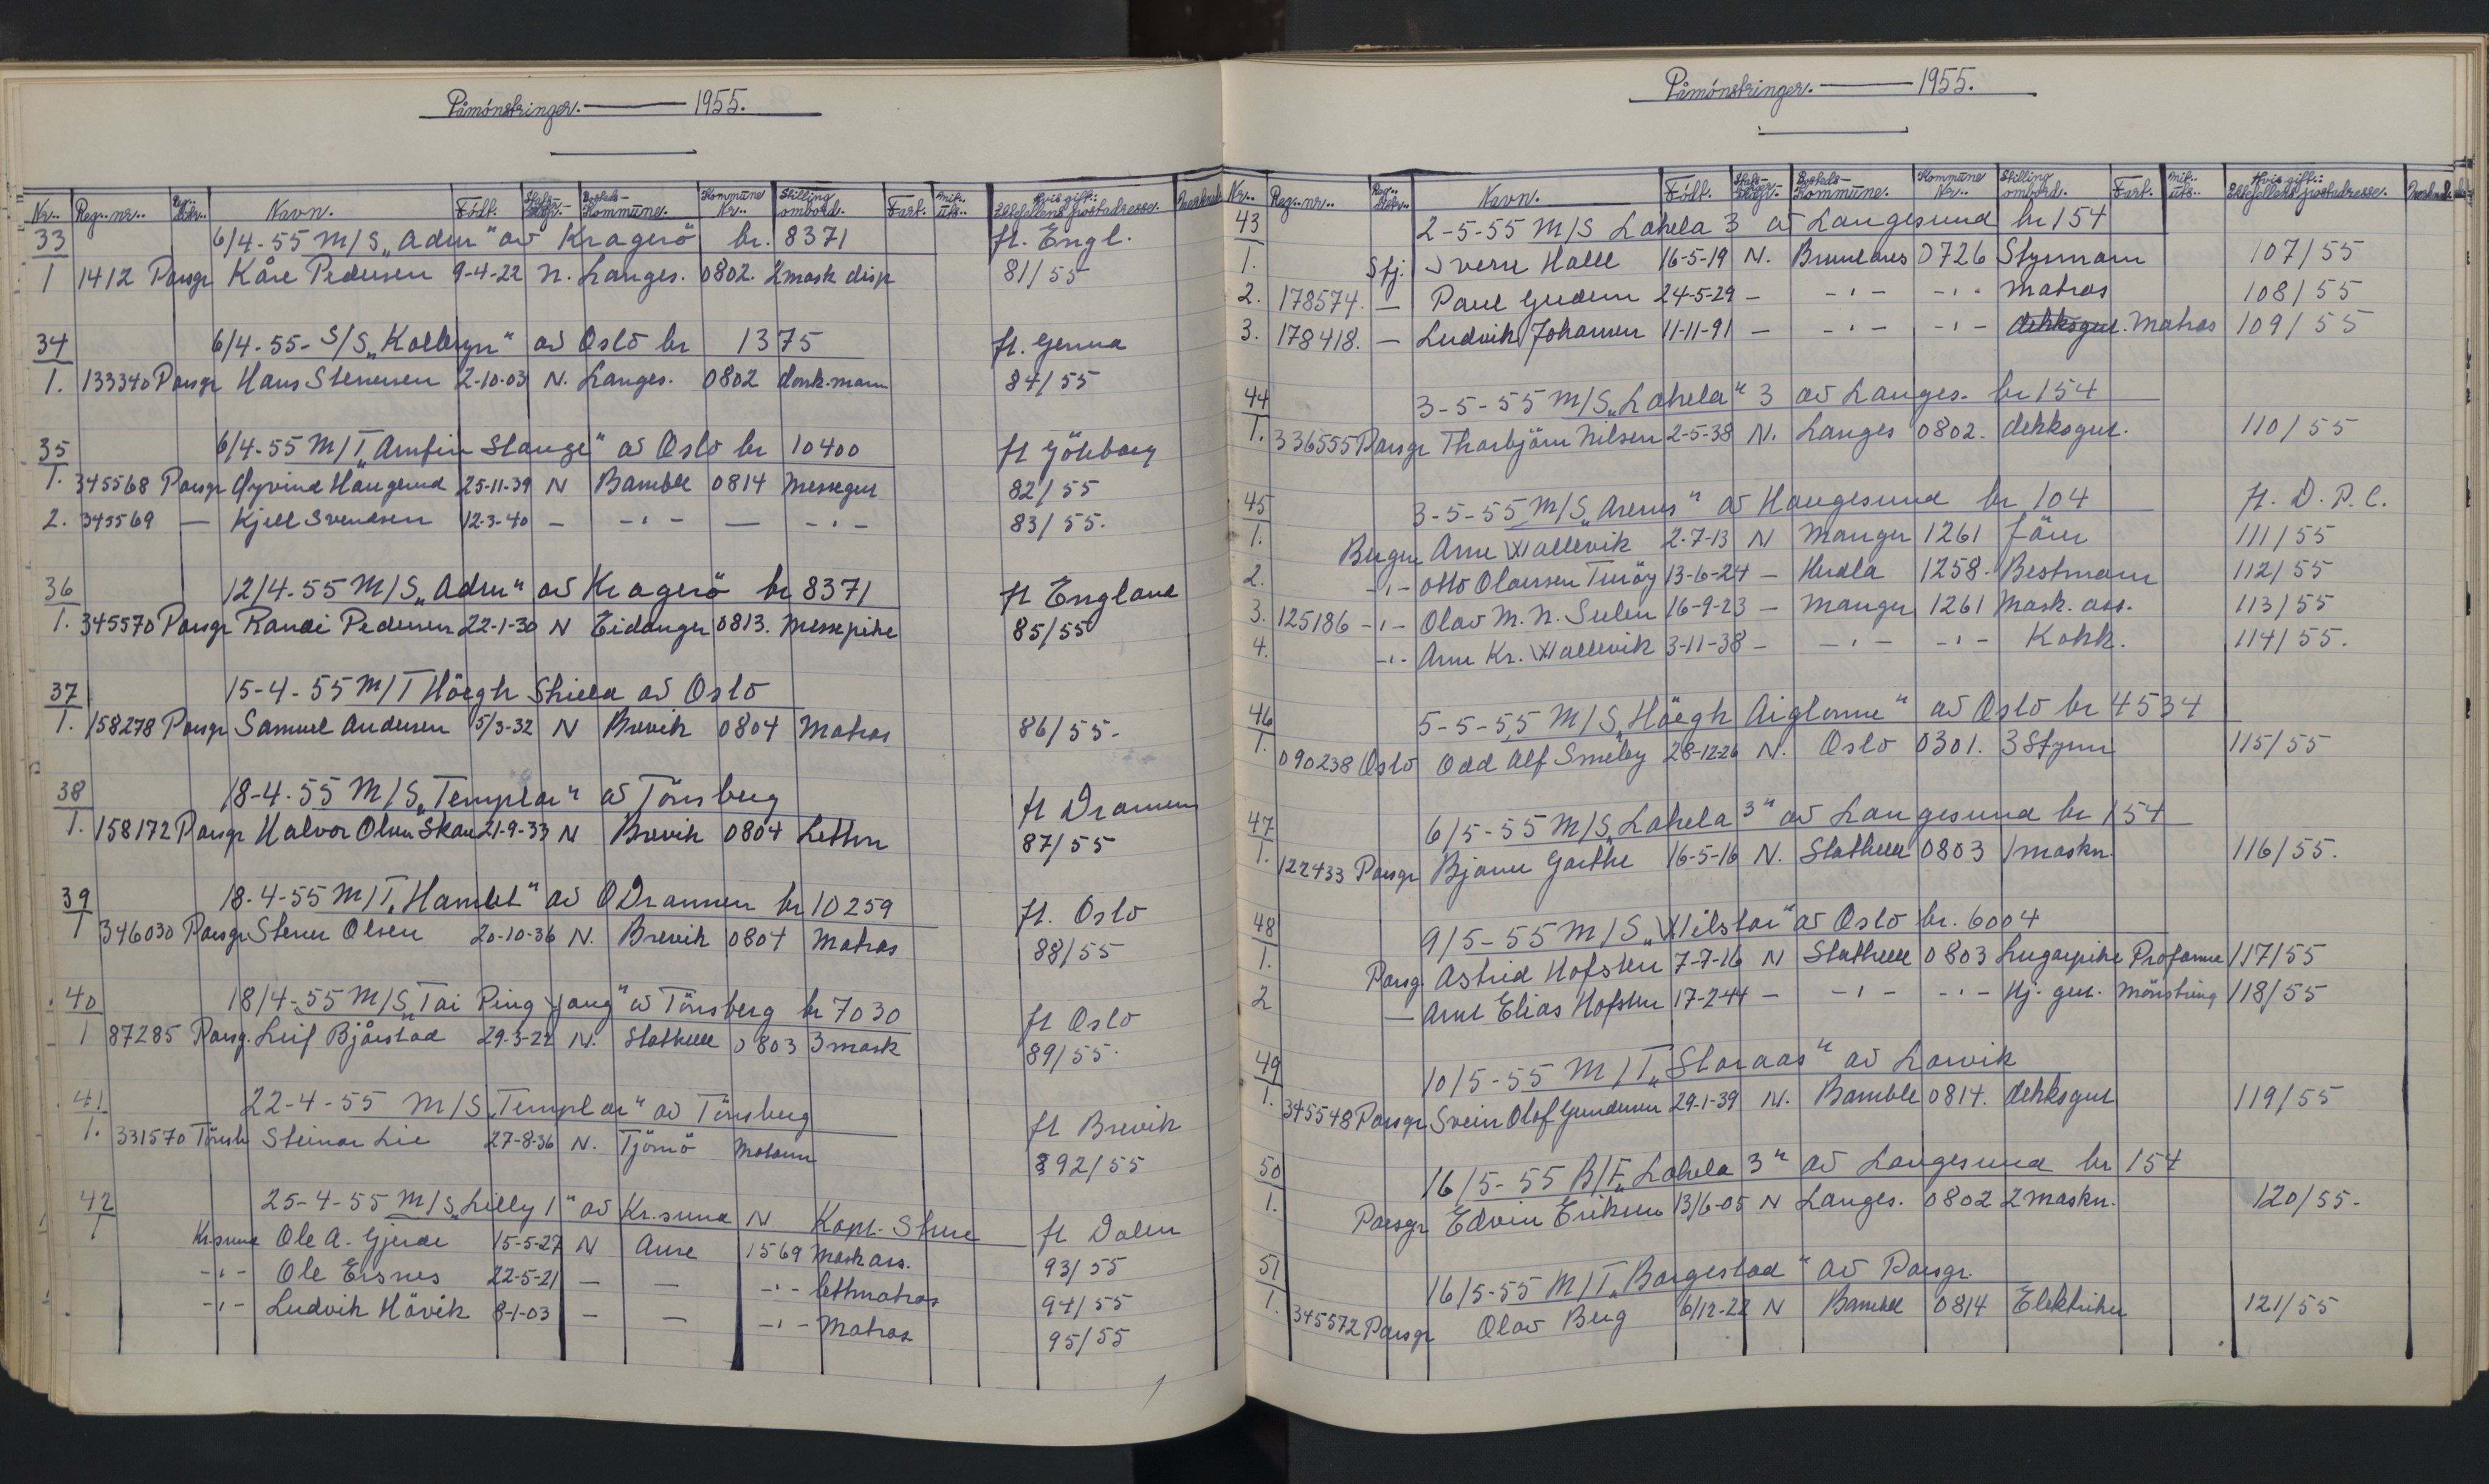 Påmønstringer. — 1955.
Nr. Reg. nr. Reg. distr. Navn. Født. Stats-borger- Bosteds-Kommune. Kommune Nr. Stilling ombord. Fart. Mil. uts. Hvis gift: Ektefellens postadresse.
33 6/4-55 M/S „Adur" av Kragerö br. 8371 ft. Engl.
1 1412 Porsgr Kåre Pedersen 9-4-22 N. Langes. 0802. 2 mask disp 81/55
34 6/4-55- S/S „Kollbryn" av Oslo br 1375 ft. Genua
1. 133340 Porsgr Hans Stenersen 2-10-03 N. Langes. 0802 donk.mann 84/55
35 6/4-55 M/T „Arnfin Stange" av Oslo br 10400 ft Göteborg
1. 345568 Porsgr Øyvind Haugerud 25-11-39 N Bamble 0814 Messegut 82/55
2. 345569 — Kjell Svendsen 12-3-40 — -"- — -"- 83/55.
36 12/4-55 M/S „Adur" av Kragerö br 8371 ft England
1. 345570 Porsgr Randi Pedersen 22-1-30 N Eidanger 0813. Messepike 85/55
37 15-4-55 M/T Höegh Shield av Oslo
1. 158278 Porsgr Samuel Andersen 5/3-32 N Brevik 0804 Matros 86/55-
38 18-4-55 M/S „Templar" av Tönsberg ft Drammen
1. 158172 Porsgr Halvor Olsen Skau 21-9-33 N Brevik 0804 Lettm 87/55
39 18-4-55 M/T „Hamlet" av O Drammen br 10259 ft. Oslo
1 346030 Porsgr Steinar Olsen 20-10-36 N. Brevik 0804 Matros 88/55
40 18/4-55 M/S „Tai Ping Yang" av Tönsberg br 7030 ft Oslo
1 87285 Porsg. Leif Bjårstad 29-3-22 N. Stathelle 0803 3 mask 89/55.
41 22-4-55 M/S „Templar" av Tönsberg ft Brevik
1. 331570 Tönsb Steinar Lie 27-8-36 N. Tjömö Motorm 92/55
42 25-4-55 M/S „Lilly 1" av Kr.sund N. Kapt. Strue ft Dalen
1 Kr.sund Ole A. Gjerde 15-5-27 N Aure 1569 Mask ass. 93/55
-"- Ole Ersnes 22-5-21 — — -"- lettmatros 94/55
-"- Ludvik Hövik 8-1-03 — — -"- Matros 95/55
Påmønstringer. — 1955.
Nr. Reg. nr. Reg. distr. Navn. Født. Stats-borger- Bosteds-Kommune. Kommune Nr. Stilling ombord. Fart. Mil. uts. Hvis gift: Ektefellens postadresse.
43 2-5-55 M/S Lahela 3 av Langesund br 154
1. Sfj. Sverre Halle 16-5-19 N. Brunlanes 0726 Styrmann 107/55
2. 178574. — Paul Gudem 24-5-29 — -"- -"- Matros 108/55
3. 178418. — Ludvik Johansen 11-11-91 — -"- -"- dekksgut. Matros 109/55
44 3-5-55 M/S „Lahela" 3 av Langes. br 154
1. 336555 Porsgr Thorbjörn Nilsen 2-5-38 N. Langes 0802. dekksgut. 110/55
45 3-5-55 M/S „Arenes" av Haugesund br 104 ft. D.P.C.
1. Bergen Arne Wallevik 2-7-13 N Manger 1261 förer 111/55
2. -"- Otto Olaussen Turöy 13-6-24 — Herdla 1258. Bestmann 112/55
3. 125186 -"- Olav M. N. Seelen 16-9-23 — Manger 1261 Mask. ass. 113/55
4. -"- Arne Kr. Wallevik 3-11-38 — -"- -"- Kokk. 114/55.
46 5-5-55 M/S „Höegh Aiglonne" av Oslo br 4534
1. 090238 Oslo Odd Alf Smeby 28-12-26 N. Oslo 0301. 3 Styrm 115/55
47 6/5-55 M/S „Lahela 3" av Langesund br 154
1. 122433 Porsgr Bjarne Goethe 16-5-16 N. Stathelle 0803 1 maskn. 116/55.
48 9/5-55 M/S „Wilstar" av Oslo br. 6004
1. Porsg. Astrid Hofsten 7-7-16 N Stathelle 0803 Lugarpike Proforma 117/55
2 — Arne Elias Hofsten 17-2-44 — -"- -"- Hj. gut. mönstring 118/55
49 10/5-55 M/T „Storaas" av Larvik
1. 345548 Porsgr Svein Olof Gundersen 29-1-39 N. Bamble 0814. dekksgut 119/55
50 16/5-55 B/F „Lahela 3" av Langesund br 154
1. Porsgr Edvin Eriksen 13/6-05 N Langes. 0802 2 maskn. 120/55-
51 16/5-55 M/T „Borgestad" av Porsgr.
1. 345572 Porsgr Olav Berg 6/12-22 N Bamble 0814 Elektriker 121/55